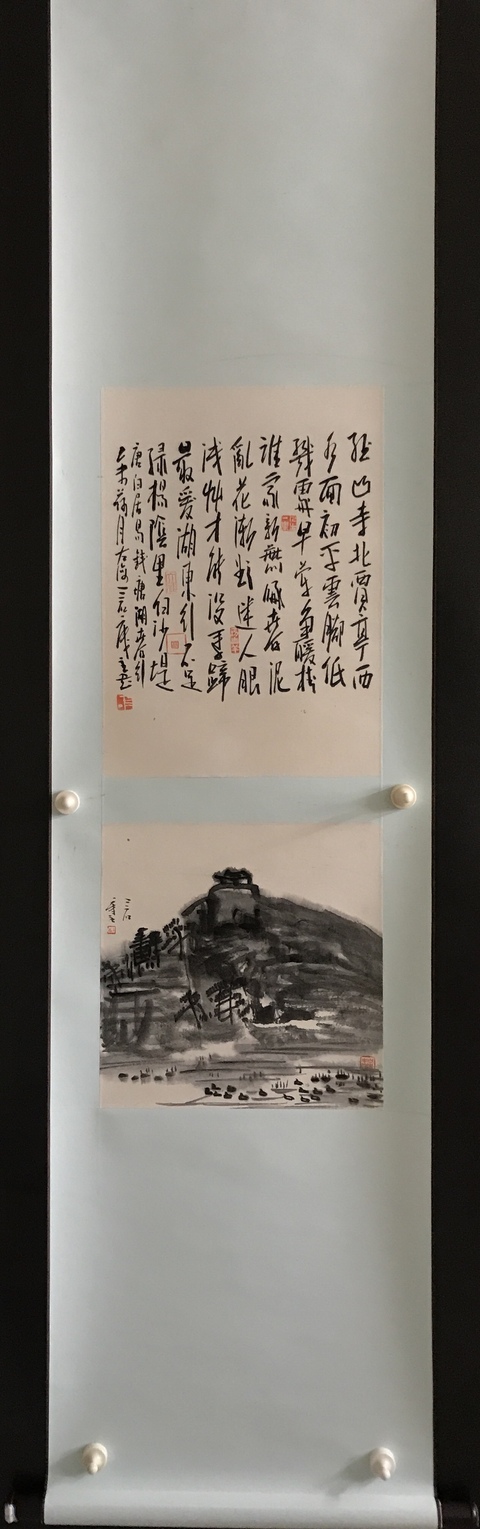 孤山寺北賈亭西
水面初平雲腳低
幾處早鶯爭暖樹
誰家新燕啄春泥
亂花漸欲迷人眼
淺草才能沒馬蹄
最愛湖東行不足
綠楊陰里白沙堤
唐白居易錢塘湖春行
乙未荷月
三石